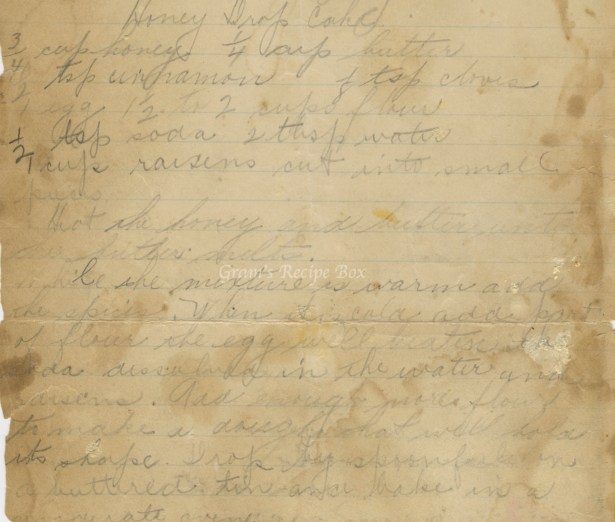 Honey Drop Cake
3/4 cup honey 1/4 cup butter
1/2 tsp cinnamon tsp cloves
1 egg 1 1/2 to 2 cups flour
1/2 tsp soda 2 tbsp water
1 cup raisens cut into small
Heat the honey and butter until
the butter melts.
While the mixture is warm add
Gram's Recipe Box
the spices. When it is cold add part
of flour the egg well beaten the
soda dissolved in the water and
raisens. Add enough more flour
to make a dough that will hold
its shape. Drop by spoonfuls on
a buttered tin and bake in a
moderate oven